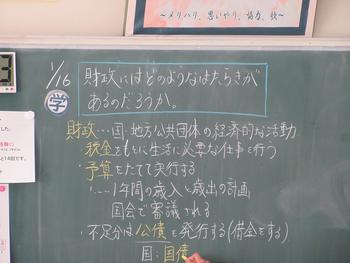 ～メリハリ、思いやり、協力、故～
1/16
学
財政にはどのようなはたらきが
あるのだろうか。
財政…国・地方公共団体の経済的な活動
税金をもとに生活に必要な仕事を行う
・予算をたてて実行する
↳…1年間の歳入と歳出の計画
国会で審議される
・不足分は公債を発行する(借金をする)
国:国債
3
した。
14回です。